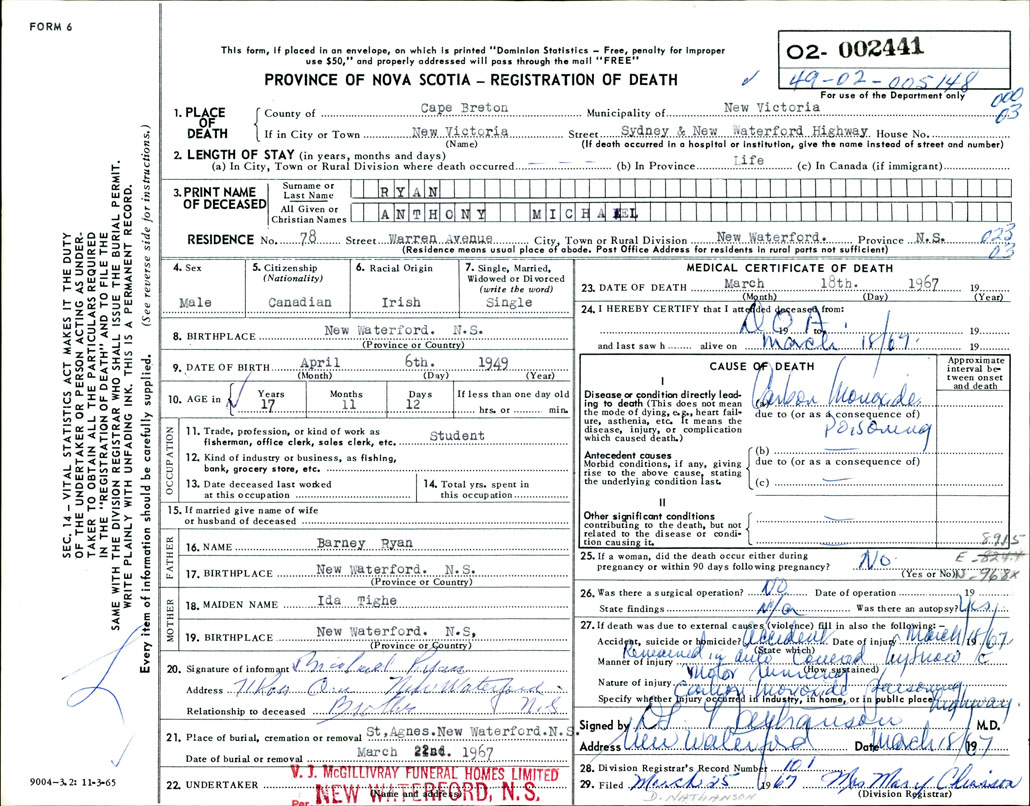 FORM 6
This form, if placed in an envelope, on which is printed "Dominion Statistics – Free, penalty for improper
use $50," and properly addressed will pass through the mail "FREE"
PROVINCE OF NOVA SCOTIA – REGISTRATION OF DEATH
02- 002441
49-02-005148
For use of the Department only
000
03
SEC. 14 – VITAL STATISTICS ACT MAKES IT THE DUTY
OF THE UNDERTAKER OR PERSON ACTING AS UNDER-
TAKER TO OBTAIN ALL THE PARTICULARS REQUIRED
IN THE "REGISTRATION OF DEATH" AND TO FILE THE
SAME WITH THE DIVISION REGISTRAR WHO SHALL ISSUE THE BURIAL PERMIT.
WRITE PLAINLY WITH UNFADING INK. THIS IS A PERMANENT RECORD.
Every item of information should be carefully supplied. (See reverse side for instructions.)
1. PLACE OF DEATH
County of Cape Breton Municipality of New Victoria
If in City or Town New Victoria Street Sydney & New Waterford Highway House No.
(Name) (If death occurred in a hospital or institution, give the name instead of street and number)
2. LENGTH OF STAY (in years, months and days)
(a) In City, Town or Rural Division where death occurred (b) In Province Life (c) In Canada (if immigrant)
3. PRINT NAME OF DECEASED
Surname or Last Name RYAN
All Given or Christian Names ANTHONY MICHAEL
RESIDENCE No. 78 Street Warren Avenue City, Town or Rural Division New Waterford. Province N.S.
023
03
(Residence means usual place of abode. Post Office Address for residents in rural parts not sufficient)
4. Sex
Male
5. Citizenship (Nationality)
Canadian
6. Racial Origin
Irish
7. Single, Married, Widowed or Divorced (write the word)
Single
8. BIRTHPLACE New Waterford. N.S.
(Province or Country)
9. DATE OF BIRTH April 6th. 1949
(Month) (Day) (Year)
10. AGE in Years Months Days If less than one day old
17 11 12 hrs. or min.
OCCUPATION
11. Trade, profession, or kind of work as fisherman, office clerk, sales clerk, etc. Student
12. Kind of industry or business, as fishing, bank, grocery store, etc.
13. Date deceased last worked at this occupation
14. Total yrs. spent in this occupation
15. If married give name of wife or husband of deceased
FATHER
16. NAME Barney Ryan
17. BIRTHPLACE New Waterford. N.S.
(Province or Country)
MOTHER
18. MAIDEN NAME Ida Tighe
19. BIRTHPLACE New Waterford. N.S,
(Province or Country)
20. Signature of informant
Address New Waterford
Relationship to deceased Brother N.S
21. Place of burial, cremation or removal St,Agnes.New Waterford.N.S.
Date of burial or removal March 22nd. 1967
22. UNDERTAKER V. J. McGILLIVRAY FUNERAL HOMES LIMITED
(Name and address)
Per NEW WATERFORD, N. S.
9004-3.2: 11-3-65
MEDICAL CERTIFICATE OF DEATH
23. DATE OF DEATH March 18th. 1967 19
(Month) (Day) (Year)
24. I HEREBY CERTIFY that I attended deceased from:
D.O.A.
19 to 19
and last saw h alive on March 18/67 19
CAUSE OF DEATH
Approximate interval between onset and death
I
Disease or condition directly leading to death (This does not mean the mode of dying, e.g., heart failure, asthenia, etc. It means the disease, injury, or complication which caused death.)
(a) Carbon Monoxide
due to (or as a consequence of)
Poisoning
Antecedent causes
Morbid conditions, if any, giving rise to the above cause, stating the underlying condition last.
(b)
due to (or as a consequence of)
(c)
II
Other significant conditions
contributing to the death, but not related to the disease or condition causing it.
8915
25. If a woman, did the death occur either during pregnancy or within 90 days following pregnancy? No
(Yes or No)
E
N-968x
26. Was there a surgical operation? No Date of operation 19
State findings N/a Was there an autopsy? Yes
27. If death was due to external causes (violence) fill in also the following:–
Accident, suicide or homicide? Accident Date of injury March 18/67 19
(State which)
Manner of injury Remained in auto covered by snow c
(How sustained)
motor running
Nature of injury Carbon monoxide Poisoning
Specify whether injury occurred in industry, in home, or in public place Highway.
Signed by M.D.
Address New Waterford Date March 18/67 19
28. Division Registrar's Record Number 101
29. Filed March 25 1967 Mrs Mary
(Division Registrar)
D. NATHANSON